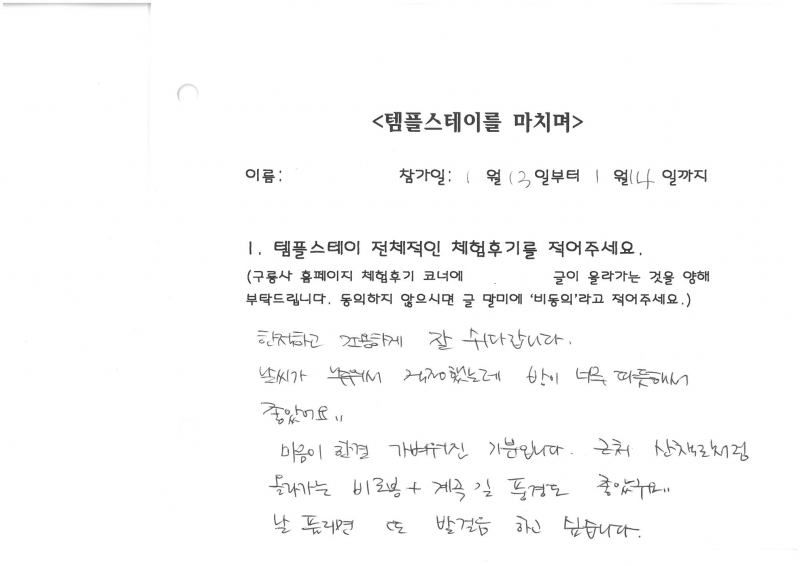 <템플스테이를 마치며>
이름: 참가일: 1 월 13일부터 1 월14 일까지
1. 템플스테이 전체적인 체험후기를 적어주세요.
(구룡사 홈페이지 체험후기 코너에 글이 올라가는 것을 양해
부탁드립니다. 동의하지 않으시면 글 말미에 '비동의'라고 적어주세요.)
한적하고 조용하게 잘 쉬다갑니다.
날씨가 추워서 걱정했는데 방이 너무 따뜻해서
좋았어요
마음이 한결 가벼워진 기분입니다. 근처 산책로처럼
올라가는 비로봉 + 계곡 길 풍경도 좋았구요
날 풀리면 또 발걸음 하고 싶습니다.